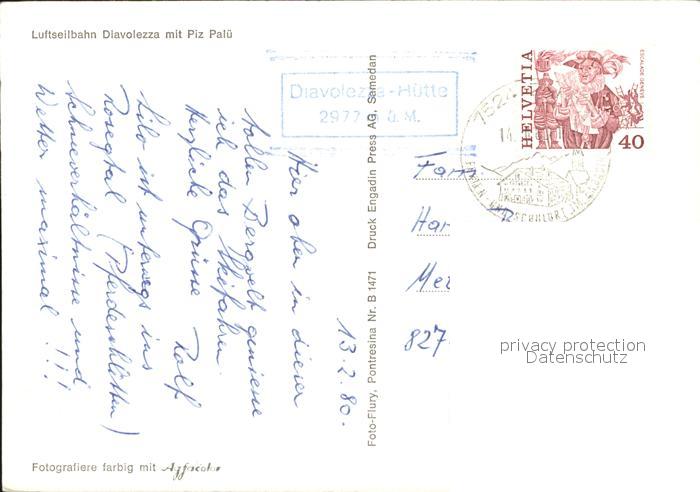 Luftseilbahn Diavolezza mit Piz Palü
Diavolezza-Hütte
2977 ü.M.
HELVETIA
ESCALADE GENÈVE
40
7524
14.
13.2.80.
Hier oben in dieser
tollen Bergwelt geniesse
ich das Skifahren.
Herzliche Grüsse Ralf
Lilo ist unterwegs ins
Rosegtal (Pferdeschlitten)
Schneeverhältnisse und
Wetter maximal!!!
Foto-Flury, Pontresina Nr. B 1471 Druck Engadin Press AG, Samedan
Fam.
Har
Mer
827
privacy protection
Datenschutz
Fotografiere farbig mit Agfacolor